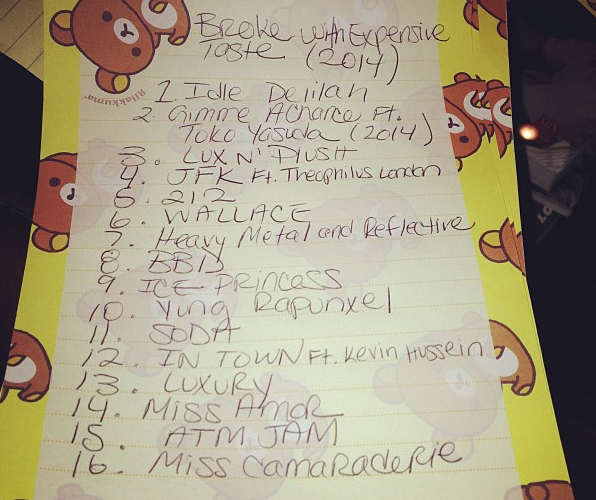 Broke with Expensive
Taste (2014)
Rilakkuma™
1. Idle Delilah
2. Gimme A Chance Ft.
Toko Yasuda (2014)
3. LUX N' PLUSH
4. JFK Ft. Theophilus London
5. 212
6. WALLACE
7. Heavy Metal and Reflective
8. BBD
9. ICE PRINCESS
10. Yung Rapunxel
11. SODA
12. IN TOWN Ft. Kevin Hussein
13. LUXURY
14. Miss Amor
15. ATM JAM
16. Miss Camaraderie